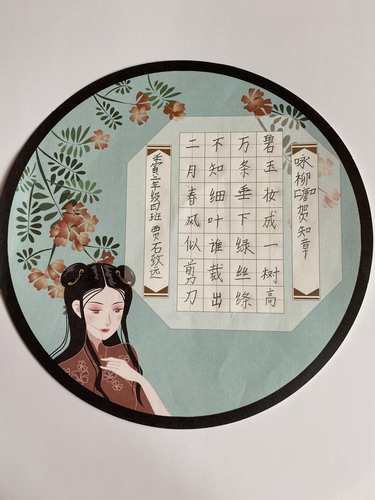 咏柳 贺知章
碧玉妆成一树高
万条垂下绿丝绦
不知细叶谁裁出
二月春风似剪刀
壬寅三年级四班 贾石致远